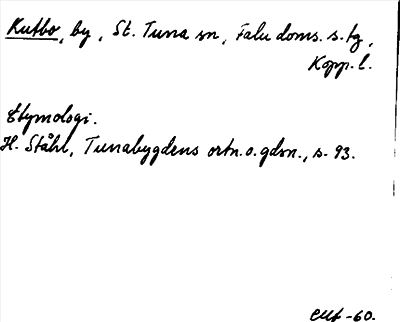 Kutbo, by, St. Tuna sn, Falu doms. s. tg,
Kopp. l.
Etymologi.
H. Ståhl, Tunabygdens ortn. o. gdsn., s. 93.
-60.